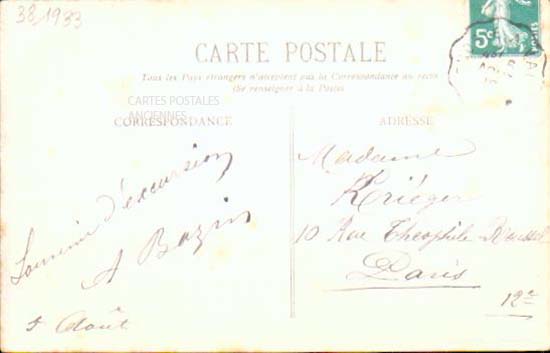 38/1933
CARTE POSTALE
Tous les Pays étrangers n'acceptent pas la Correspondance au recto
(Se renseigner à la Poste)
CARTES POSTALES
ANCIENNES
CORRESPONDANCE
Souvenir d'excursion
A Bazin
Août
ADRESSE
Madame
Kriéger
10 Rue Théophile Roussel
Paris
12e
5c
POSTES